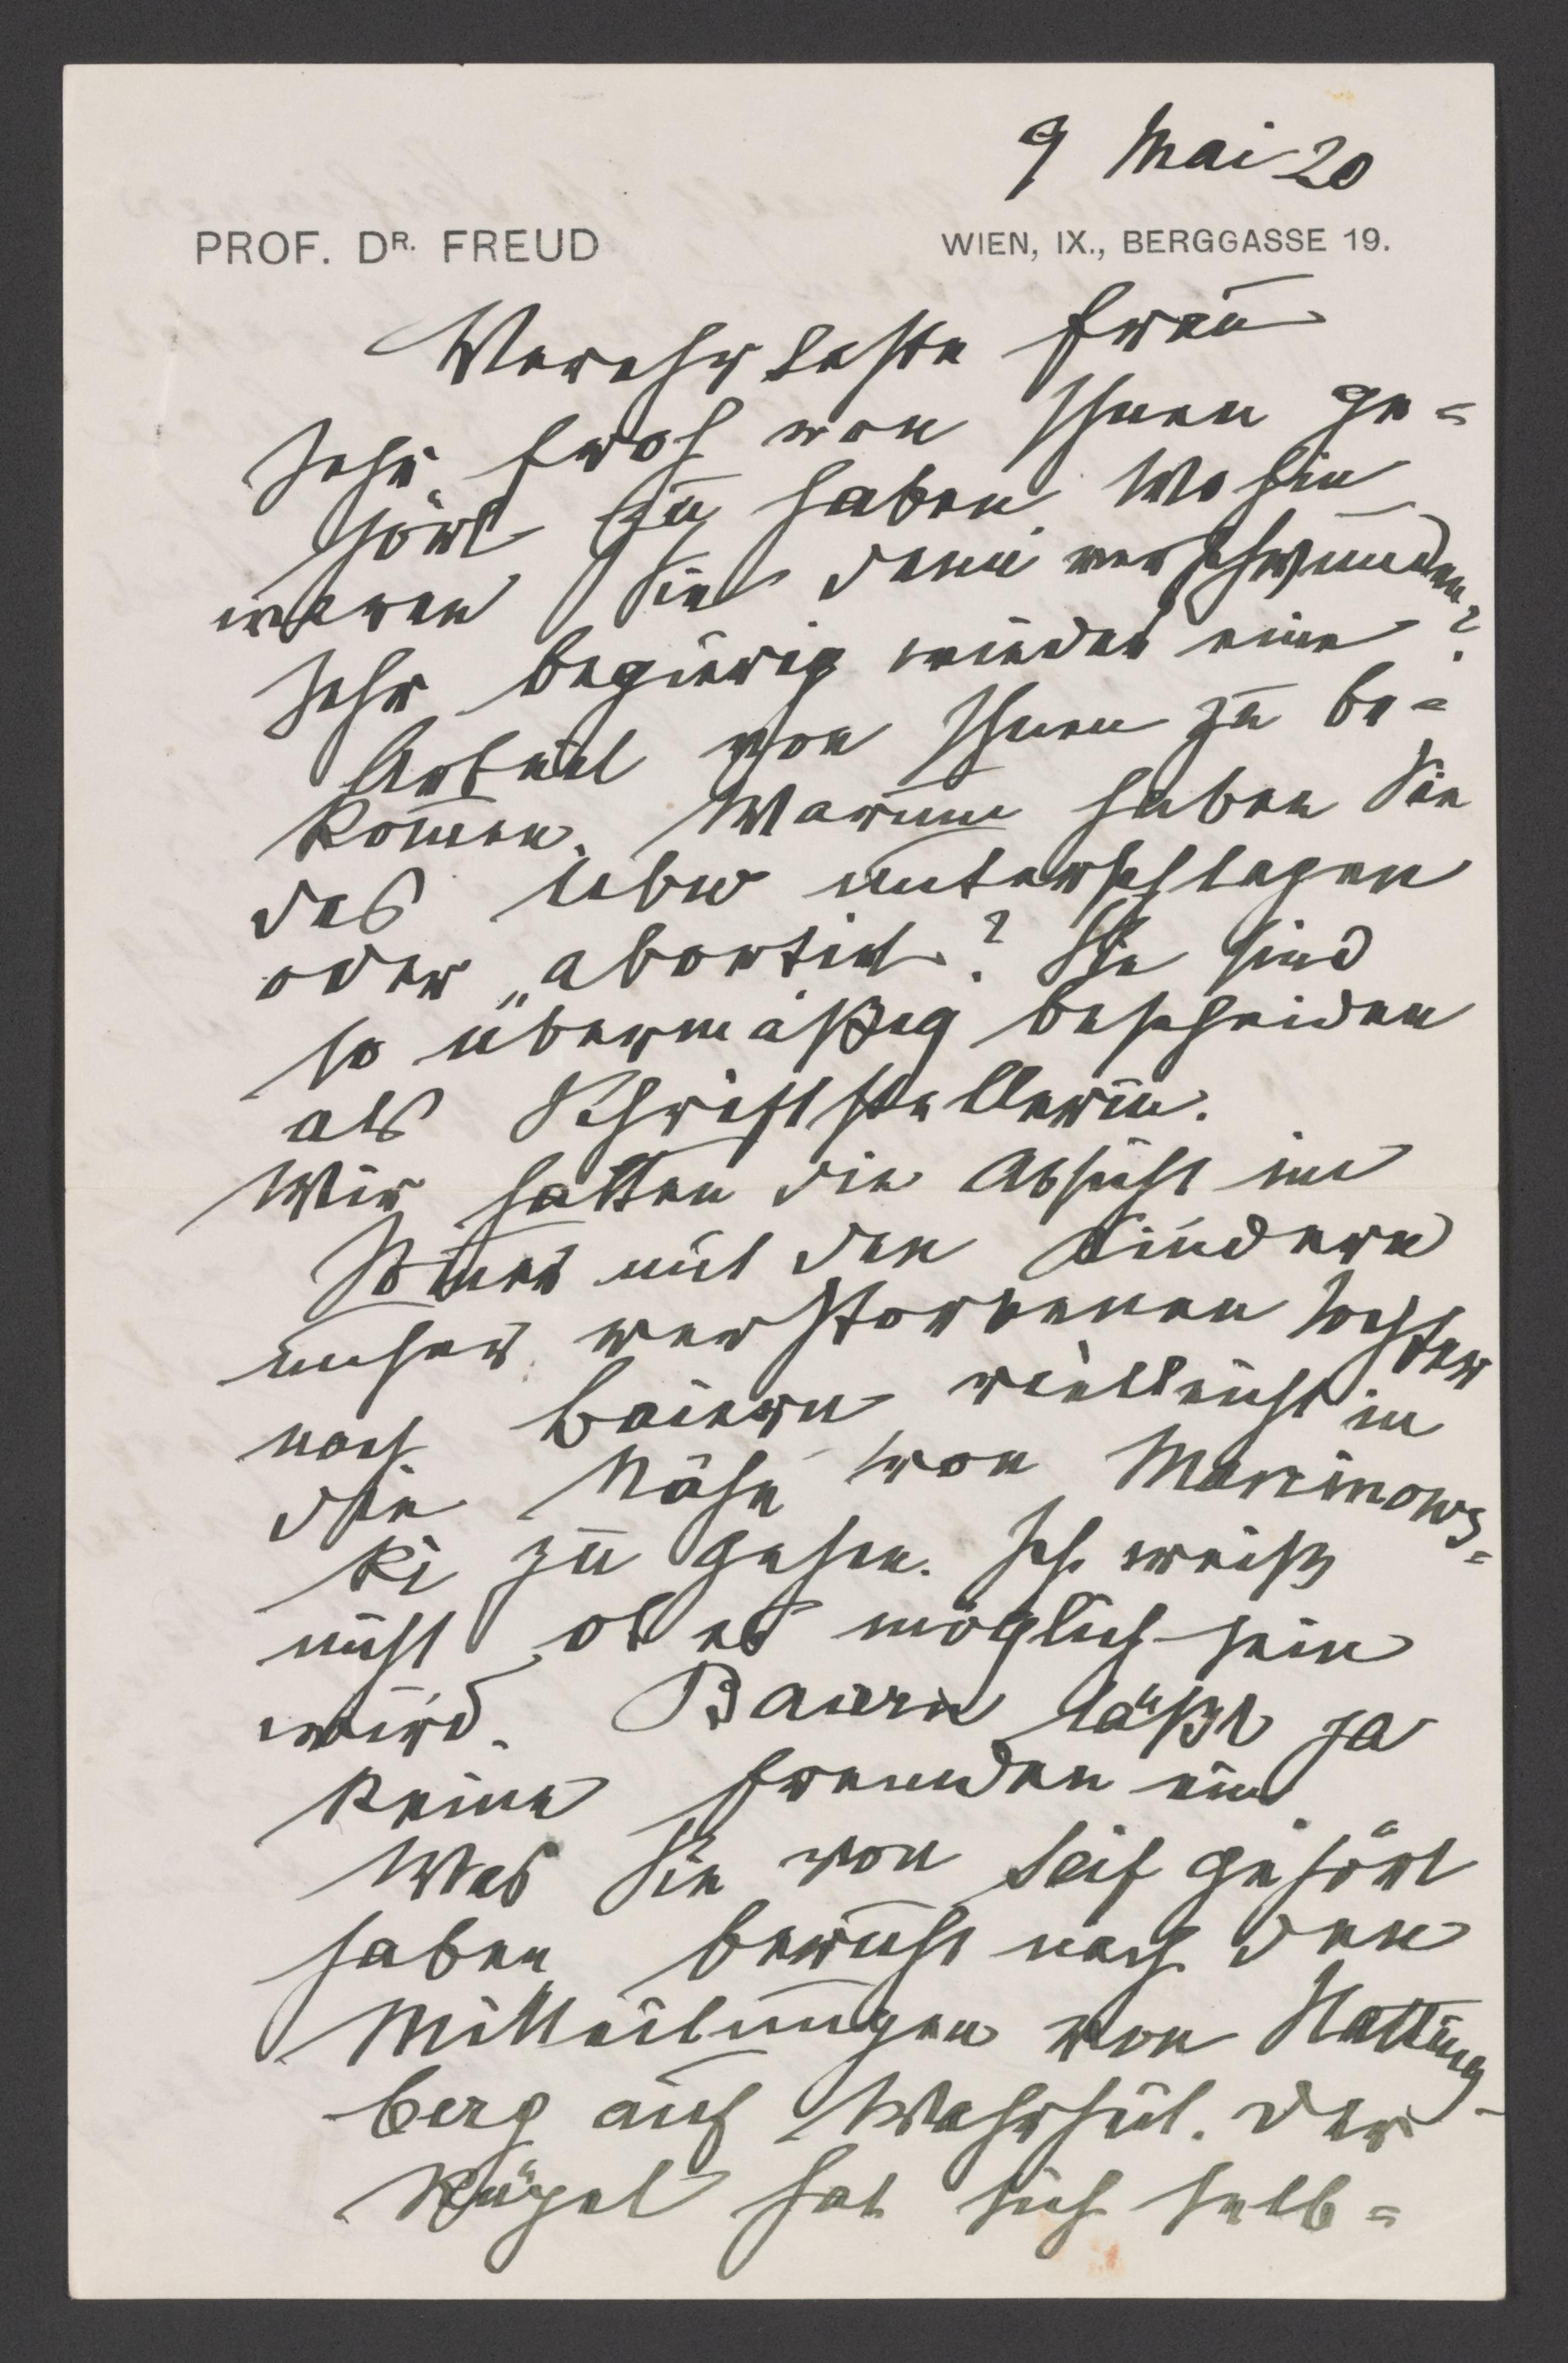 9 Mai 20
PROF. DR. FREUD
WIEN, IX., BERGGASSE 19.
Verehrteste Frau
Sehr froh von Ihnen ge=
hört zu haben. Wohin
waren Sie denn verschwunden?
Sehr begierig wieder eine
Arbeit von Ihnen zu be=
kom̅en. Warum haben Sie
das Ubw unterschlagen
oder „abortirt? Sie sind
so übermäßig bescheiden
als Schriftstellerin.
Wir hatten die Absicht im
Som̅er mit den Kindern
unser verstorbenen Tochter
nach Baiern vielleicht in
die Nähe von Marcinows=
ki zu gehen. Ich weiß
nicht ob es möglich sein
wird. Baiern läßt ja
keine Fremden ein.
Was Sie von Seif gehört
haben beruht nach den
Mitteilungen von Hatting
berg auf Wahrheit. Der
Kügel hat sich selb=